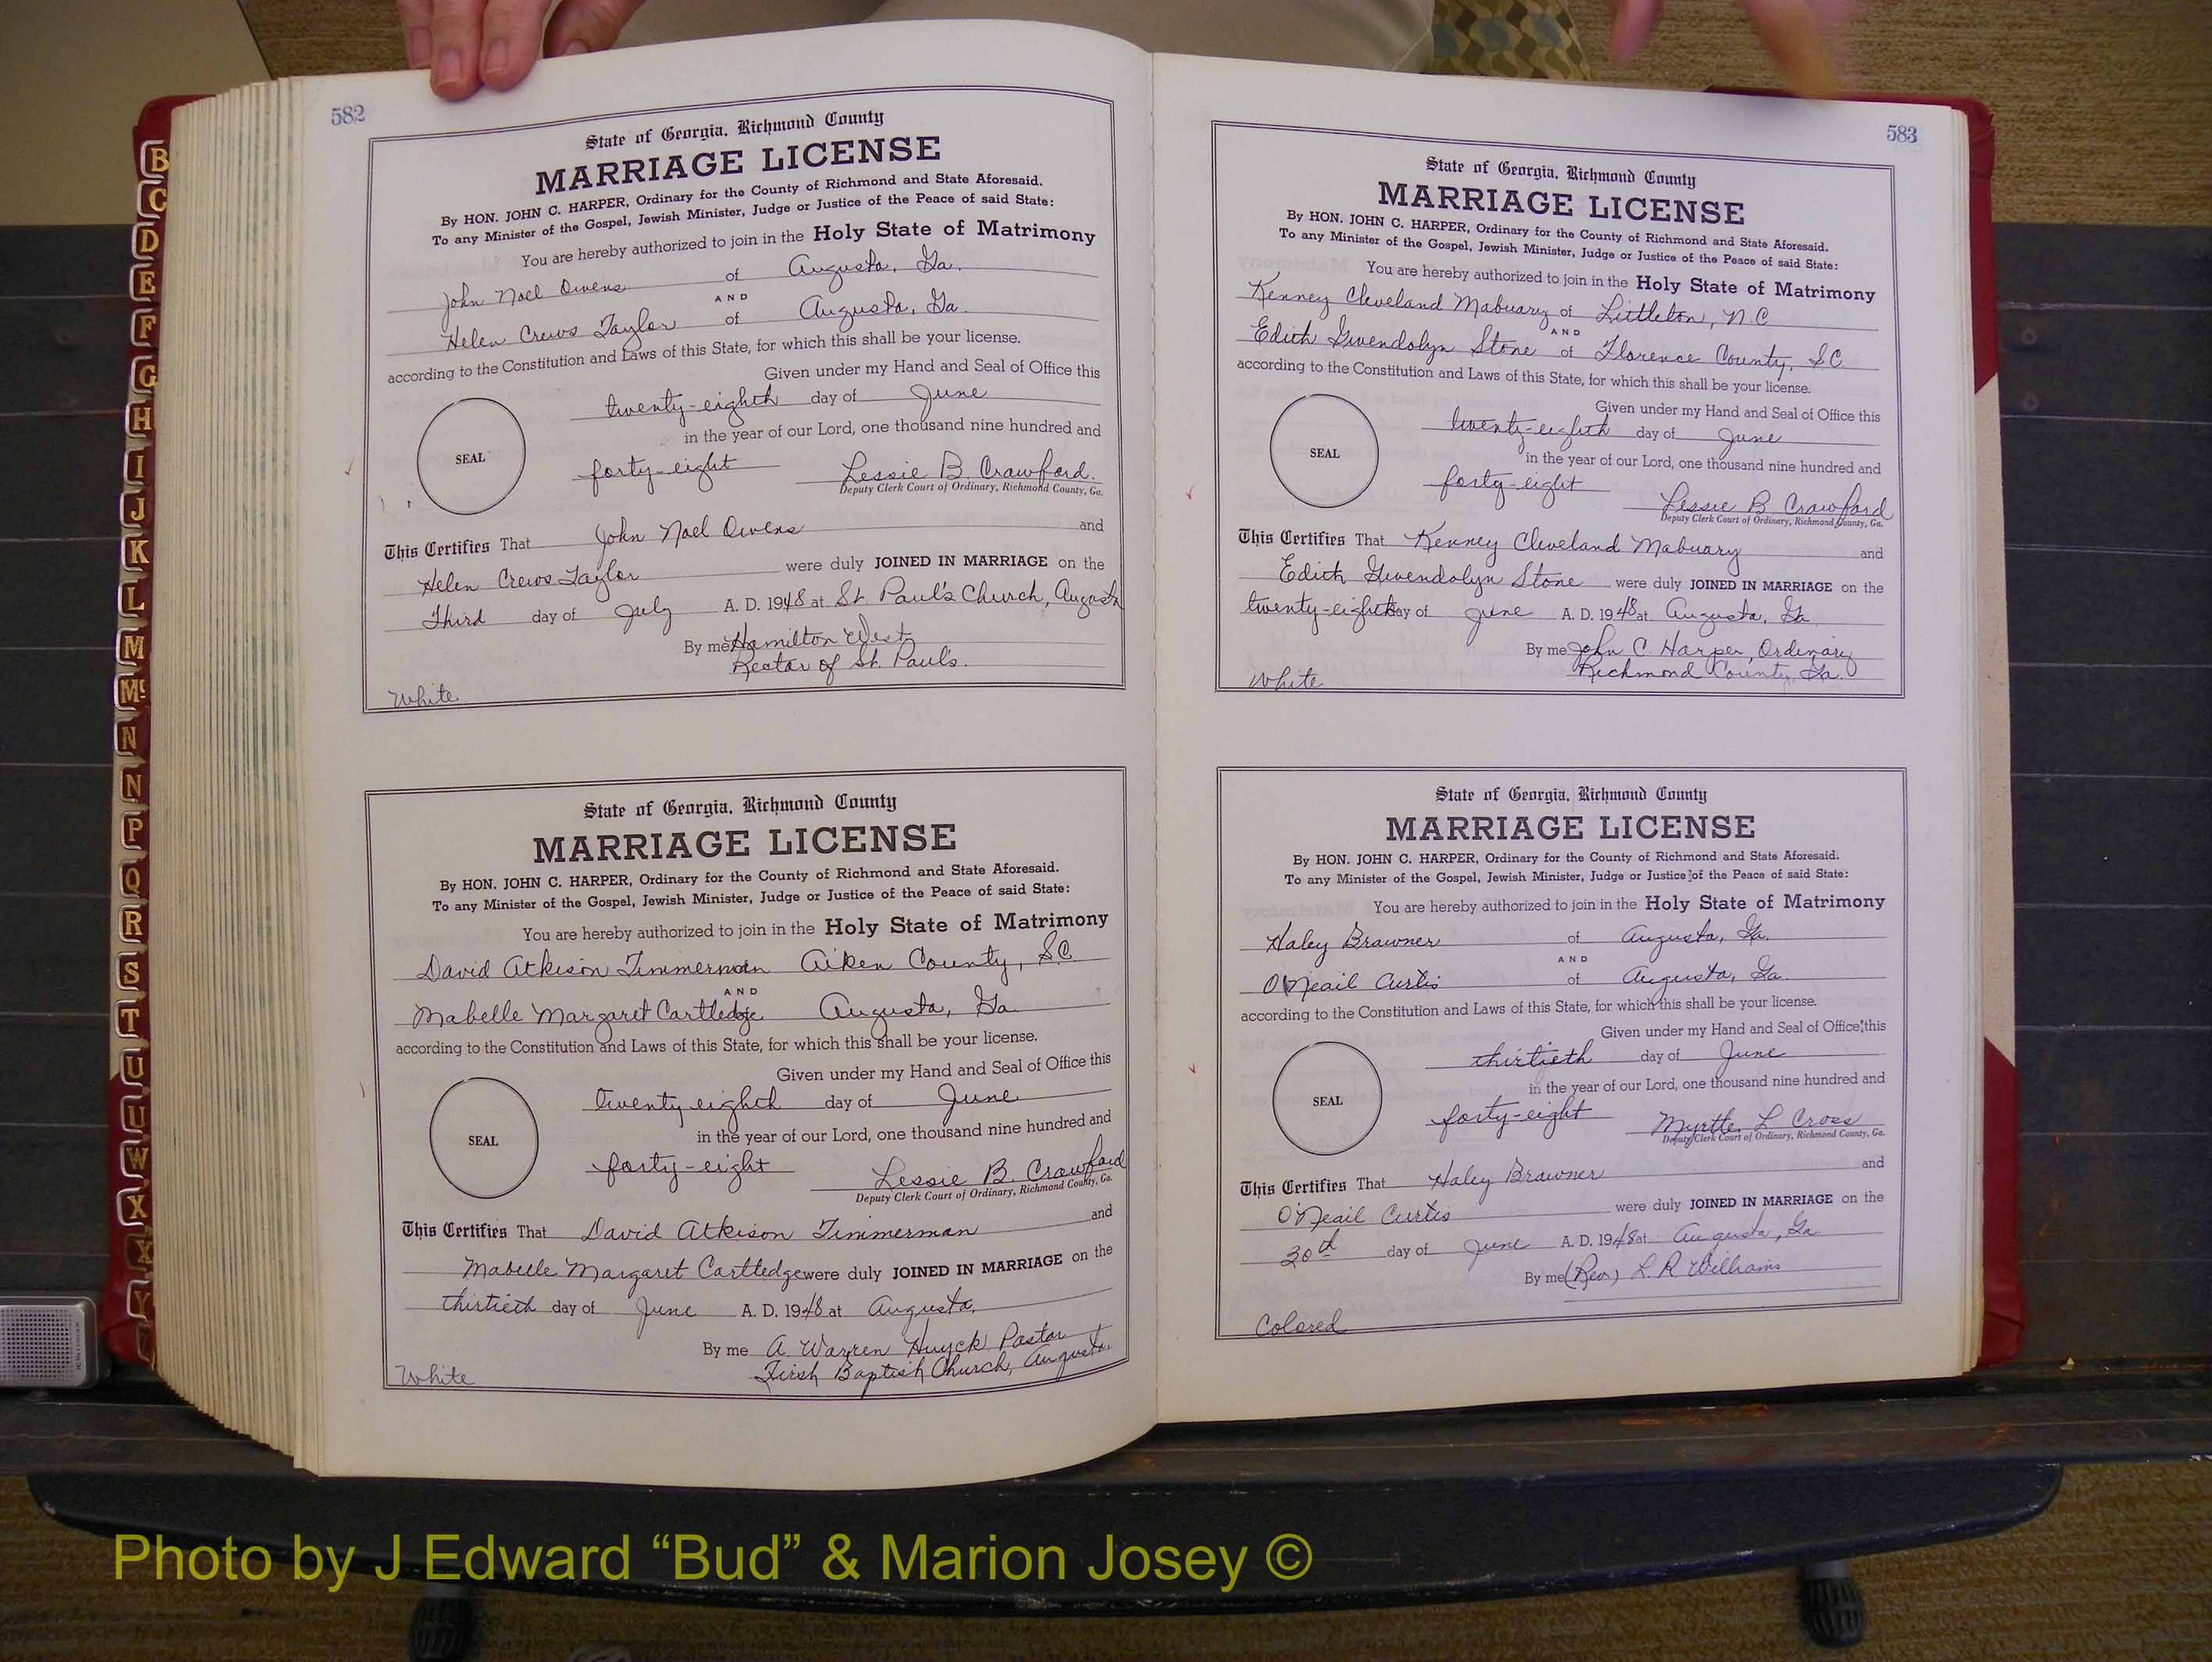 582
State of Georgia, Richmond County
MARRIAGE LICENSE
By HON. JOHN C. HARPER, Ordinary for the County of Richmond and State Aforesaid.
To any Minister of the Gospel, Jewish Minister, Judge or Justice of the Peace of said State:
You are hereby authorized to join in the Holy State of Matrimony
John Noel Owens of Augusta, Ga.
AND
Helen Crews Taylor of Augusta, Ga.
according to the Constitution and Laws of this State, for which this shall be your license.
Given under my Hand and Seal of Office this
twenty-eighth day of June
in the year of our Lord, one thousand nine hundred and
SEAL
forty-eight Lessie B. Crawford.
Deputy Clerk Court of Ordinary, Richmond County, Ga.
This Certifies That John Noel Owens and
Helen Crews Taylor were duly JOINED IN MARRIAGE on the
Third day of July A. D. 1948 at St. Paul's Church, Augusta
By me Hamilton West
Rector of St. Paul's.
White
State of Georgia, Richmond County
MARRIAGE LICENSE
By HON. JOHN C. HARPER, Ordinary for the County of Richmond and State Aforesaid.
To any Minister of the Gospel, Jewish Minister, Judge or Justice of the Peace of said State:
You are hereby authorized to join in the Holy State of Matrimony
David Atkison Timmerman Aiken County, S.C.
AND
Mabelle Margaret Cartledge Augusta, Ga.
according to the Constitution and Laws of this State, for which this shall be your license.
Given under my Hand and Seal of Office this
twenty eighth day of June
in the year of our Lord, one thousand nine hundred and
SEAL
forty-eight Lessie B. Crawford
Deputy Clerk Court of Ordinary, Richmond County, Ga.
This Certifies That David Atkison Timmerman and
Mabelle Margaret Cartledge were duly JOINED IN MARRIAGE on the
thirtieth day of June A. D. 1948 at Augusta,
By me A. Warren Huyck Pastor
First Baptist Church, Augusta.
White
583
State of Georgia, Richmond County
MARRIAGE LICENSE
By HON. JOHN C. HARPER, Ordinary for the County of Richmond and State Aforesaid.
To any Minister of the Gospel, Jewish Minister, Judge or Justice of the Peace of said State:
You are hereby authorized to join in the Holy State of Matrimony
Kenney Cleveland Mabuary of Littleton, N.C
AND
Edith Gwendolyn Stone of Florence County, S.C.
according to the Constitution and Laws of this State, for which this shall be your license.
Given under my Hand and Seal of Office this
twenty-eighth day of June
in the year of our Lord, one thousand nine hundred and
SEAL
forty-eight Lessie B Crawford
Deputy Clerk Court of Ordinary, Richmond County, Ga.
This Certifies That Kenney Cleveland Mabuary and
Edith Gwendolyn Stone were duly JOINED IN MARRIAGE on the
twenty-eighth day of June A. D. 1948 at Augusta, Ga
By me John C Harper, Ordinary
Richmond County, Ga.
White
State of Georgia, Richmond County
MARRIAGE LICENSE
By HON. JOHN C. HARPER, Ordinary for the County of Richmond and State Aforesaid.
To any Minister of the Gospel, Jewish Minister, Judge or Justice of the Peace of said State:
You are hereby authorized to join in the Holy State of Matrimony
Haley Brawner of Augusta, Ga.
AND
O'Neail Curtis of Augusta, Ga.
according to the Constitution and Laws of this State, for which this shall be your license.
Given under my Hand and Seal of Office this
thirtieth day of June
in the year of our Lord, one thousand nine hundred and
SEAL
forty-eight Myrtle L Cross
Deputy Clerk Court of Ordinary, Richmond County, Ga.
This Certifies That Haley Brawner and
O'Neail Curtis were duly JOINED IN MARRIAGE on the
30th day of June A. D. 1948 at Augusta, Ga.
By me (Rev.) L. R Williams
Colored
B
C
D
E
F
G
H
I
J
K
L
M
Mc
N
N
P
Q
R
S
T
U
U
W
X
X
Y
Photo by J Edward “Bud” & Marion Josey ©